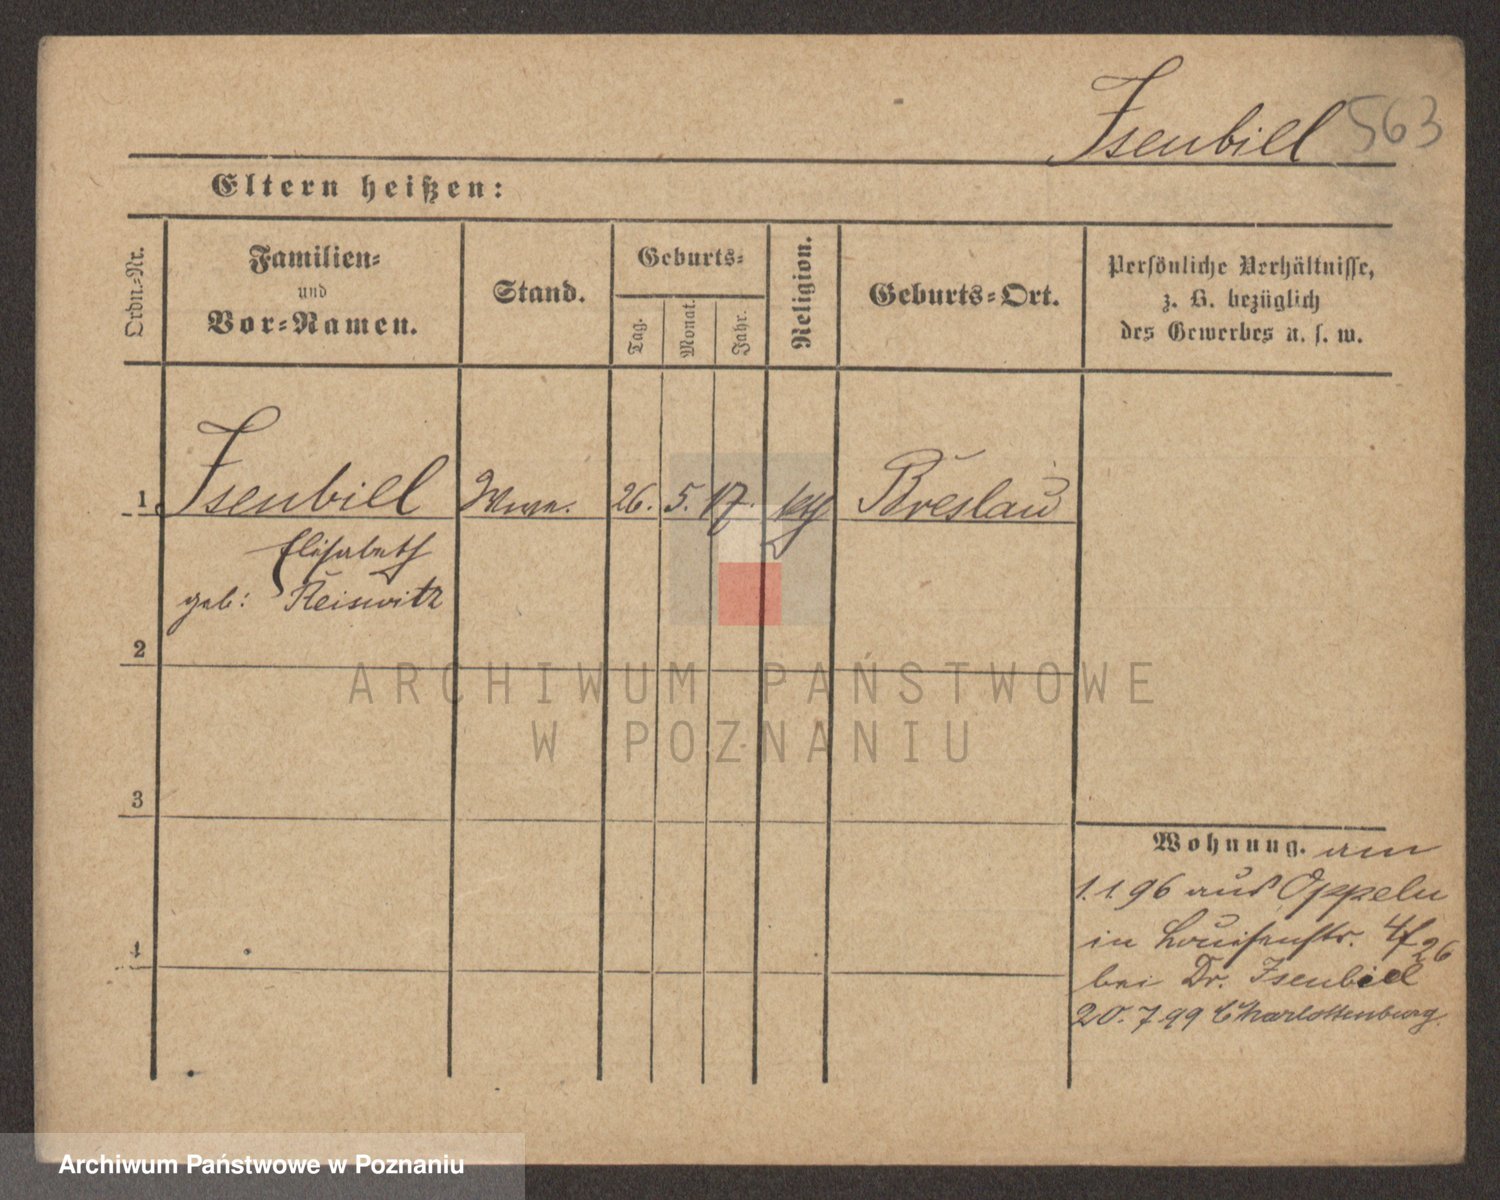 Isenbiel 563
Eltern heißen:
Ordn.-Nr.
Familien-
und
Vor-Namen.
Stand.
Geburts-
Tag.
Monat.
Jahr.
Religion.
Geburts-Ort.
Persönliche Verhältnisse,
z. B. bezüglich
des Gewerbes u. s. w.
1 Isenbiel 26. 5. 17. Breslau
Elisabeth
geb: Reiswitz
2
3
4
Wohnung. am
1.1.96 aus Oppeln
in Louisenstr.
bei Dr. Isenbiel
20.7.99 Charlottenburg.
ARCHIWUM PAŃSTWOWE
W POZNANIU
Archiwum Państwowe w Poznaniu